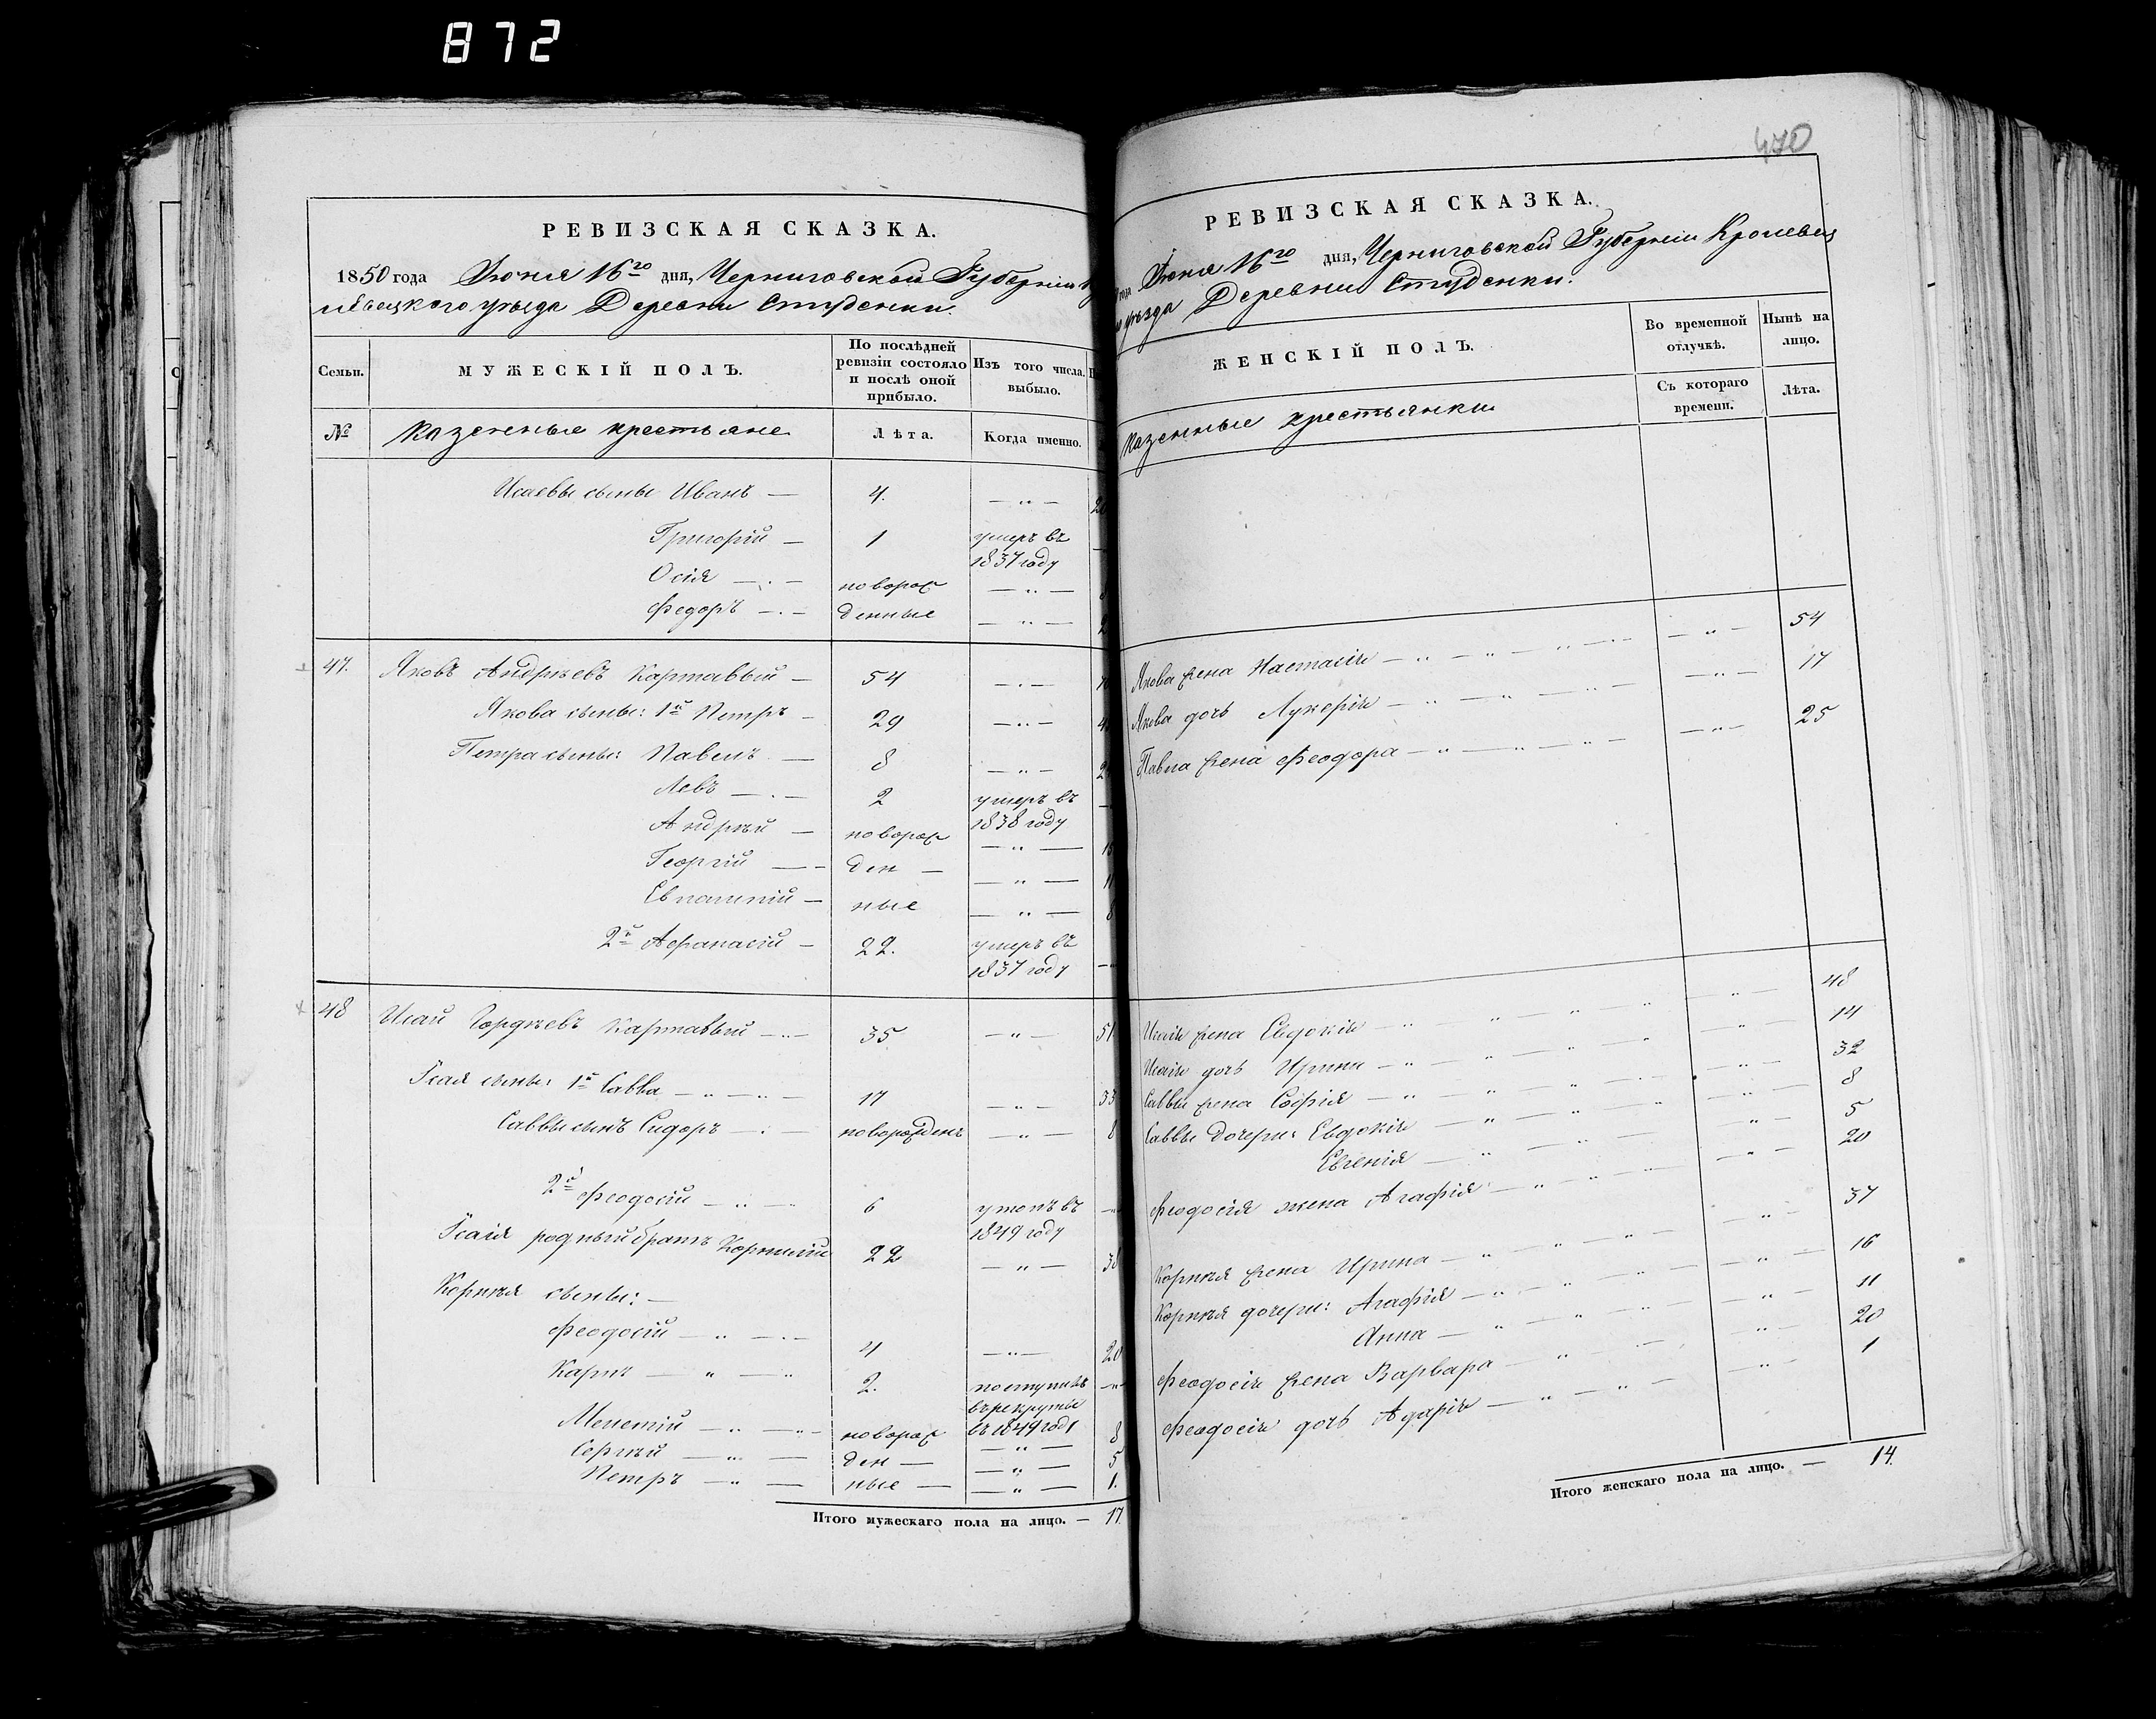 872
РЕВИЗСКАЯ СКАЗКА.
1850 года Іюня 16го дня, Черниговской Губерніи
левецкого уѣзда Деревни Студенки.
Семьи.
МУЖЕСКІЙ ПОЛЪ.
По послѣдней ревизіи состояло и послѣ оной прибыло.
Изъ того числа выбыло.
№
Казенные крестьяне
Лѣта.
Когда именно.
Исаевы сыны Иванъ — 4. — „ —
Григорій — 1 умеръ въ 1837 году
Осія — новорож — „ — 8
Федоръ — денные — „ — 2
47. Яковъ Андрѣевъ Картавый — 54 — „ —
Якова сыны: 1й Петръ — 29 — „ —
Петра сыны: Павелъ — 8 — „ —
Левъ — 2 умеръ въ 1838 году
Андрѣй — новорож — „ —
Георгій — ден — — „ — 11
Евпатій — ные — „ — 8
2й Афанасій — 22. умеръ въ 1837 году —
48 Исай Гордѣевъ Картавый — 35 — „ — 51
Ісая сыны: 1й Савва — „ — 17 — „ — 33
Саввы сынъ Сидоръ — новорожденъ — „ — 8
2й Феодосій — „ — 6 утопъ въ 1849 году
Ісаія родный братъ Корнилій 22 — „ — 38
Корнѣя сыны: —
Феодосій — „ — 4 — „ — 20
Карпъ — „ — 2. поступилъ въ рекруты въ 1849 году
Мелетій — „ — новорож — „ — 8
Сергѣй — „ — ден — — „ — 5
Петръ — „ — ные — — „ — 1.
Итого мужескаго пола на лицо. — 17.
470
РЕВИЗСКАЯ СКАЗКА.
года Іюня 16го дня, Черниговской Губерніи Кролевец
уѣзда Деревни Студенки.
ЖЕНСКІЙ ПОЛЪ.
Во временной отлучкѣ.
Нынѣ на лицо.
Съ котораго времени.
Лѣта.
Казенные крестьянки
Якова жена Настасія — „ — 54
Якова дочь Лукерія — „ — 17
Павла жена Феодора — „ — 25
Исаія жена Евдокія — „ — 48
Исаія дочь Ирина — „ — 14
Саввы жена Софія — „ — 32
Саввы дочери: Евдокія — „ — 8
Евгенія — „ — 5
Феодосія жена Агафія — „ — 20
Корнѣя жена Ирина — „ — 37
Корнѣя дочери: Агафія — „ — 16
Анна — „ — 11
Феодосія жена Варвара — „ — 20
Феодосія дочь Адарія — „ — 1
Итого женскаго пола на лицо. — 14.